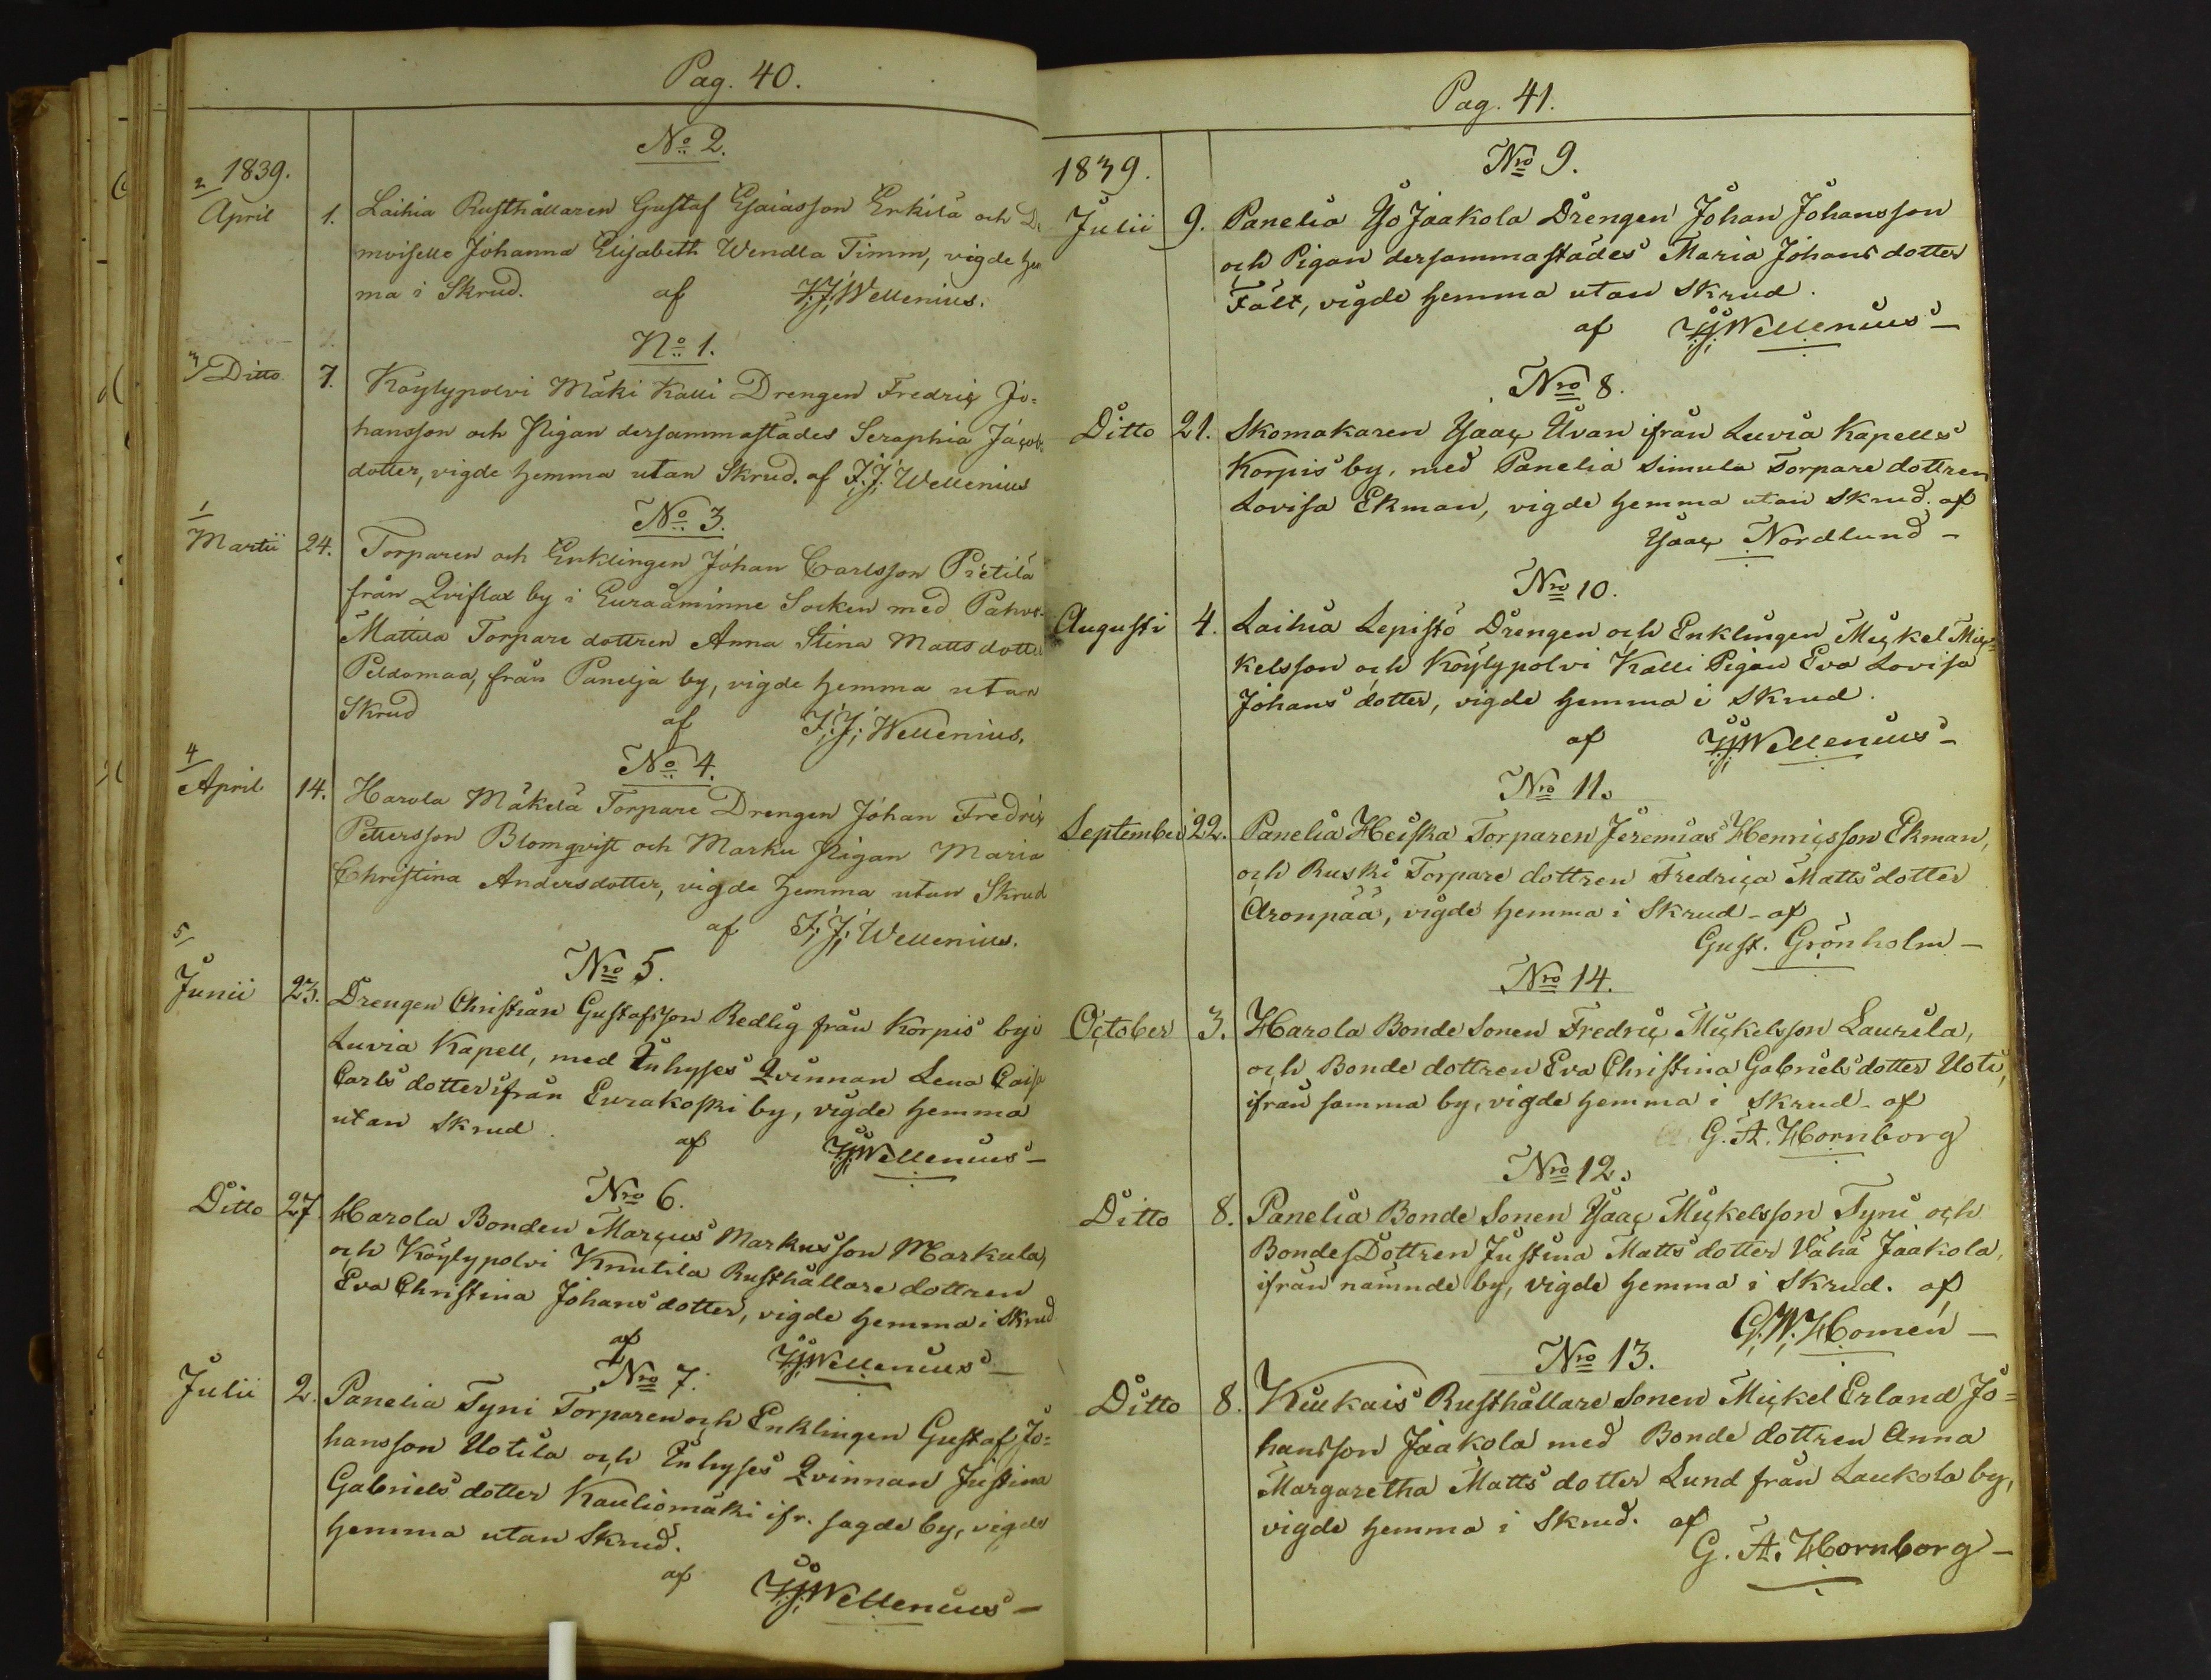 Pag. 40.
No 2.
1839.
2
April 1. Laihia Rusthållaren Gustaf Esaiasson Erkilä och De
moiselle Johanna Elisabeth Wendla Timm, vigde hem
ma i Skrud. af J. J. Wellenius.
No 1.
3
Ditto 7. Köylypolvi Mäki Kalli Drengen Fredric Jo=
hansson och Pigan dersammastädes Seraphia Jacobs
dotter, vigde hemma utan Skrud. af J. J. Wellenius
1
No 3.
Martii 24. Torparen och Enklingen Johan Carlsson Pietilä
från Qviflax by i Euraåminne Socken med
Mattila Torpare dottren Anna Stina Matts dotter
Peldomaa, från Panelja by, vigde hemma utan
Skrud af J. J. Wellenius.
4
No 4.
April 14. Harola Mäkelä Torpare Drengen Johan Fredric
Pettersson Blomqvist och Marku Pigan Maria
Christina Andersdotter, vigde hemma utan Skrud
af J. J. Wellenius.
5
Nro 5.
Junii 23. Drengen Christian Gustafsson Redlig från Korpis by i
Luvia Kapell, med Inhyses Qvinnan Lena Caisa
Carls dotter ifrån Eurakoski by, vigde hemma
utan skrud. af J. J. Wellenius —
Nro 6.
Ditto 27. Harola Bonden Marcus Markusson Markula,
och Köylypolvi Knutila Rusthållare dottren
Eva Christina Johans dotter, vigde hemma i Skrud
af J. J. Wellenius —
Nro 7.
Julii 2. Panelia Tyni Torparen och Enklingen Gustaf Jo=
hansson Uotila och Inhyses Qvinnan Justina
Gabriels dotter Kauliomäki ifr. sagde by, vigde
hemma utan Skrud.
af J. J. Wellenius —
Pag. 41.
1839.
Nro 9.
Julii 9. Panelia Yso Jaakola Drengen Johan Johansson
och Pigan dersammastädes Maria Johans dotter
Fält, vigde hemma utan skrud.
af J. J. Wellenius —
Nro 8.
Ditto 21. Skomakaren Ysaac Uvan ifrån Luvia Kapells
Korpis by, med Panelia Simula Torpare dottren
Lovisa Ekman, vigde hemma utan skrud. af
Ysaac Nordlund —
Nro 10.
Augusti 4. Laihia Lepistö Drengen och Enklingen Mickel Mic=
kelsson och Köylypolvi Kalli Pigan Eva Lovisa
Johans dotter, vigde hemma i Skrud.
af J. J. Wellenius —
Nro 11.
September 22. Panelia Heiska Torparen Jeremias Henricsson Ekman,
och Ruski Torpare dottren Fredrica Matts dotter
Aronpää, vigde hemma i Skrud — af
Gust. Grönholm —
Nro 14.
October 3. Harola Bonde Sonen Fredric Mickelsson Laurila,
och Bonde dottren Eva Christina Gabriels dotter Uoti,
ifrån samma by, vigde hemma i Skrud — af
G. A. Hornborg
Nro 12.
Ditto 8. Panelia Bonde Sonen Ysaac Mickelsson Tyni och
Bonde Dottren Justina Matts dotter Vähä Jaakola,
ifrån nämnde by, vigde hemma i Skrud. af
G. W. Homén —
Nro 13.
Ditto 8. Kiukais Rusthållare Sonen Mickel Erland Jo=
hansson Jaakola med Bonde dottren Anna
Margaretha Matts dotter Lund från Laukola by,
vigde hemma i Skrud. af
G. A. Hornborg —